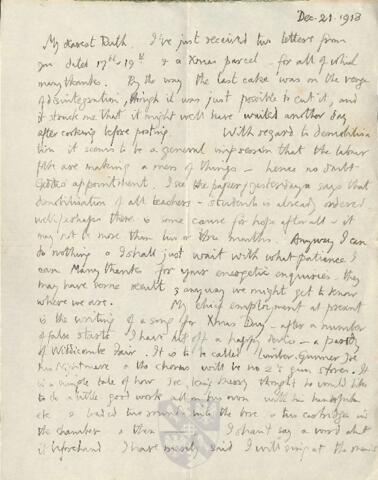 Dec. 21. 1918
My dearest Ruth. I've just received two letters from
you dated 17th & 19th & a Xmas parcel - for all of which
many thanks. By the way the last cake was on the verge
of disintegration, though it was just possible to cut it, and
it struck me that it might well have waited another day
after cooking before posting. With regard to demobilisa
tion it seems to be a general impression that the labour
folk are making a mess of things - hence no doubt
Geddes' appointment. I see the paper yesterday says that
demobilisation of all teachers & students is already ordered
well, perhaps there is some cause for hope after all - it
may not be more than two or three months. Anyway I can
do nothing & I shall just wait with what patience I
can. Many thanks for your energetic enquiries - they
may have some result & anyway we might get to know
where we are. My chief employment at present
is the writing of a song for Xmas Day - after a number
of false starts I have hit off a happy - a parody
of Widdicombe Fair. It is to be called Limber Gunner Joe
his Nightmare & the chorus will be no 2's gun stores. It
is a simple tale of how Joe, being thought he would like
to do a little good work all on his own with his
etc & loaded two rounds into the bore & his cartridges in
the chamber & then - I shan't say a word about
it beforehand. I have merely said I will sing at the